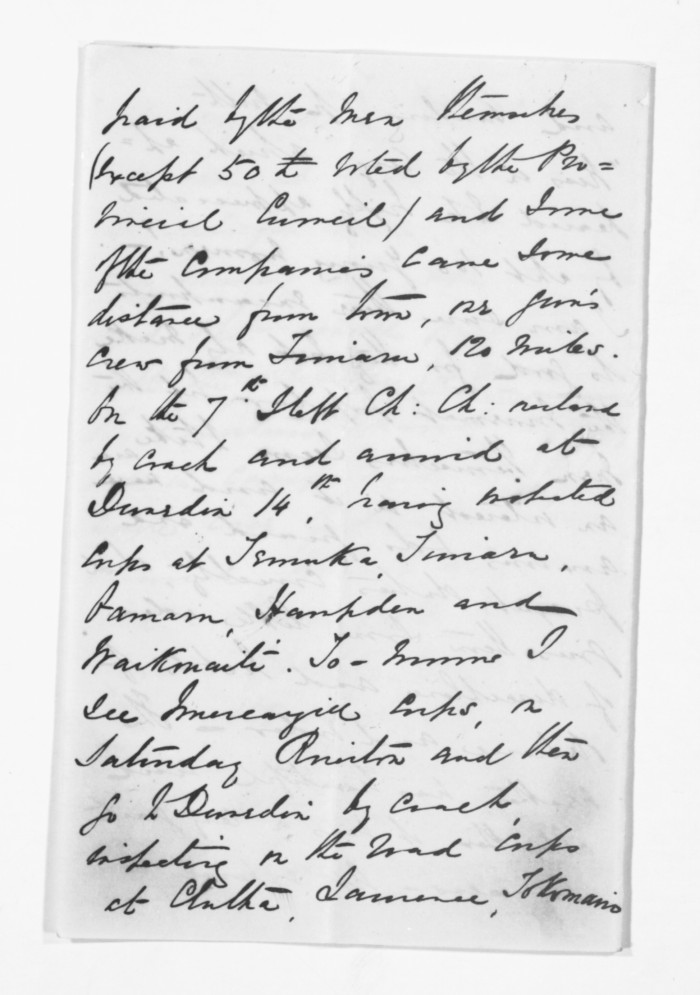 paid by the men themselves
(except 50 £ voted by the Pro=
vincial Council) and some
of the Companies came some
distance from town, one gun's
crew from Timaru, 120 miles.
On the 7th I left Ch: Ch: overland
by coach and arrived at
Dunedin 14th, having inspected
Corps at Temuka, Timaru,
Oamaru, Hampden and
Waikouaiti. To-morrow I
see Invercargill Corps, on
Saturday Riverton and then
go to Dunedin by coach,
inspecting on the road Corps
at Clutha, Lawrence, Tokomairo